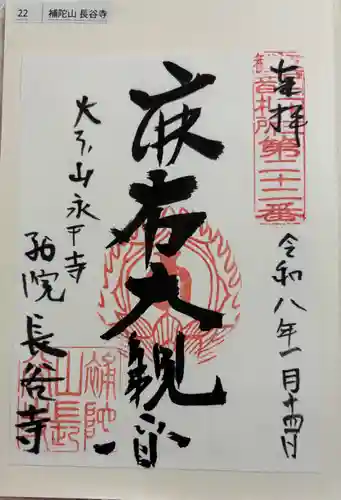 22 補陀山 長谷寺
奉拝
昔札所第二十二番
令和八年一月十四日
麻布大観音
大本山永平寺
別院
長谷寺
補陀
山長